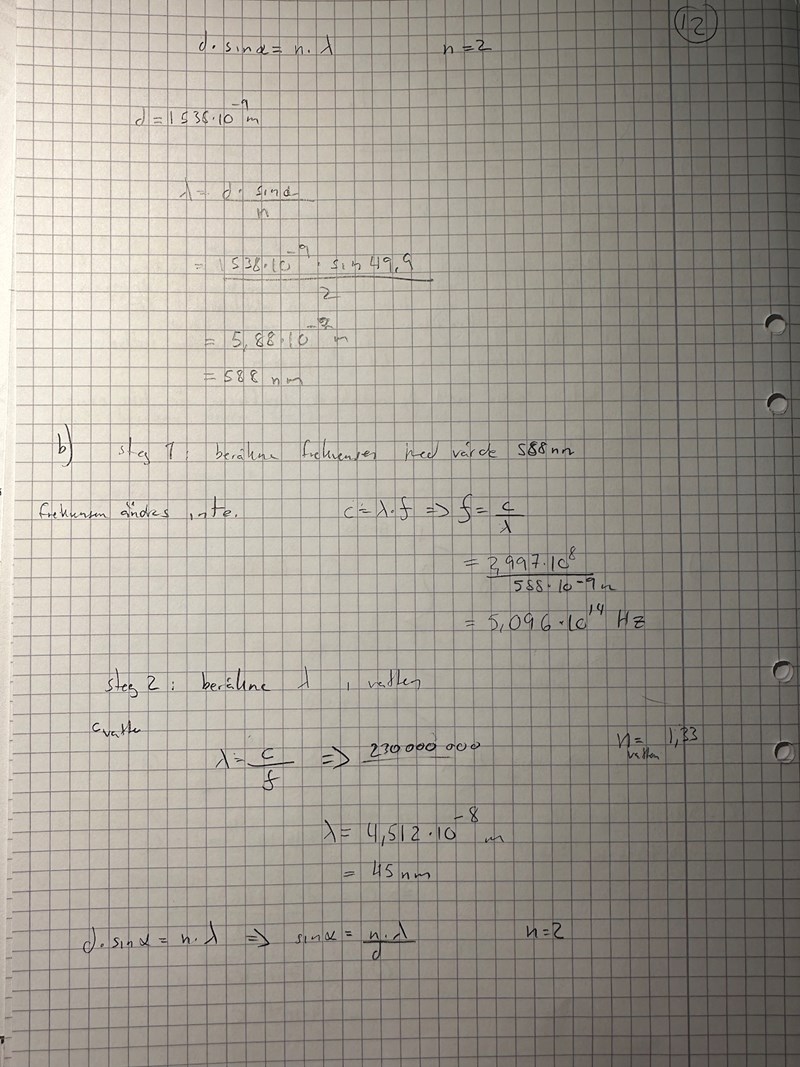 12
d · sinα = n · λ n = 2
d = 1538·10⁻⁹ m
λ = d · sinα / n
= 1538·10⁻⁹ · sin 49,9 / 2
= 5,88·10⁻⁷ m
= 588 nm
b) steg 1: beräkna frekvensen med värde 588nm
frekvensen ändras inte. c = λ·f => f = c / λ
= 2,997·10⁸ / 588·10⁻⁹ m
= 5,096·10¹⁴ Hz
steg 2: beräkna λ i vatten
c vatten
λ = c / f => 230 000 000 n vatten = 1,33
λ = 4,512·10⁻⁸ m
= 45 nm
d · sinα = n·λ => sinα = n·λ / d n=2